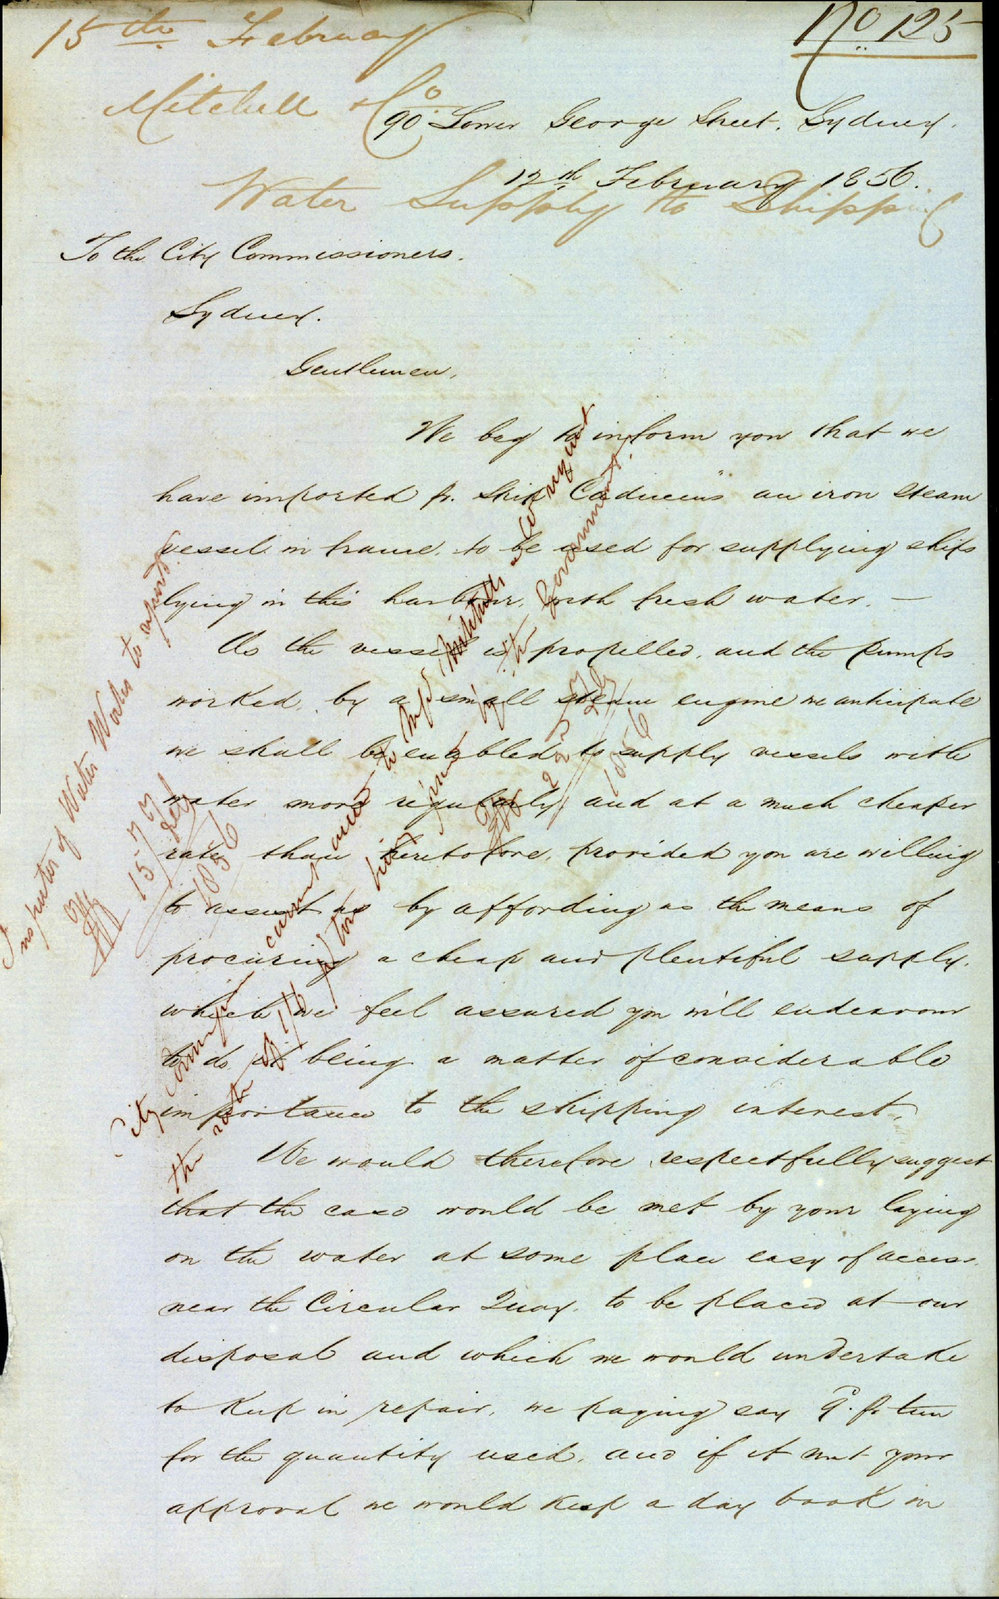 15th February
No 125
Mitchell & Co
90 Lower George Street, Sydney.
12th February 1856.
Water Supply to Shipping
To the City Commissioners.
Sydney.
Gentlemen,
We beg to inform you that we
have imported pr. Ship "Caduceus" an iron steam
vessel in frame, to be used for supplying ships
lying in this harbour, with fresh water. —
As the vessel is propelled, and the pumps
worked, by a small steam engine we anticipate
we shall be enabled to supply vessels with
water more regularly, and at a much cheaper
rate than heretofore, provided you are willing
to assist us by affording us the means of
procuring a cheap and plentiful supply,
which we feel assured you will endeavour
to do it being a matter of considerable
importance to the shipping interest.
We would therefore respectfully suggest
that the case would be met by your laying
on the water at some place easy of access
near the Circular Quay, to be placed at our
disposal and which we would undertake
to keep in repair, we paying say 9d. pr tun
for the quantity used, and if it met your
approval we would keep a day book in
Inspector of Water Works to report.
15 Feb
1856
City Commrs current and to Mitchell to request
the rate of 1/6 pr ton being by the Government.
22
1856